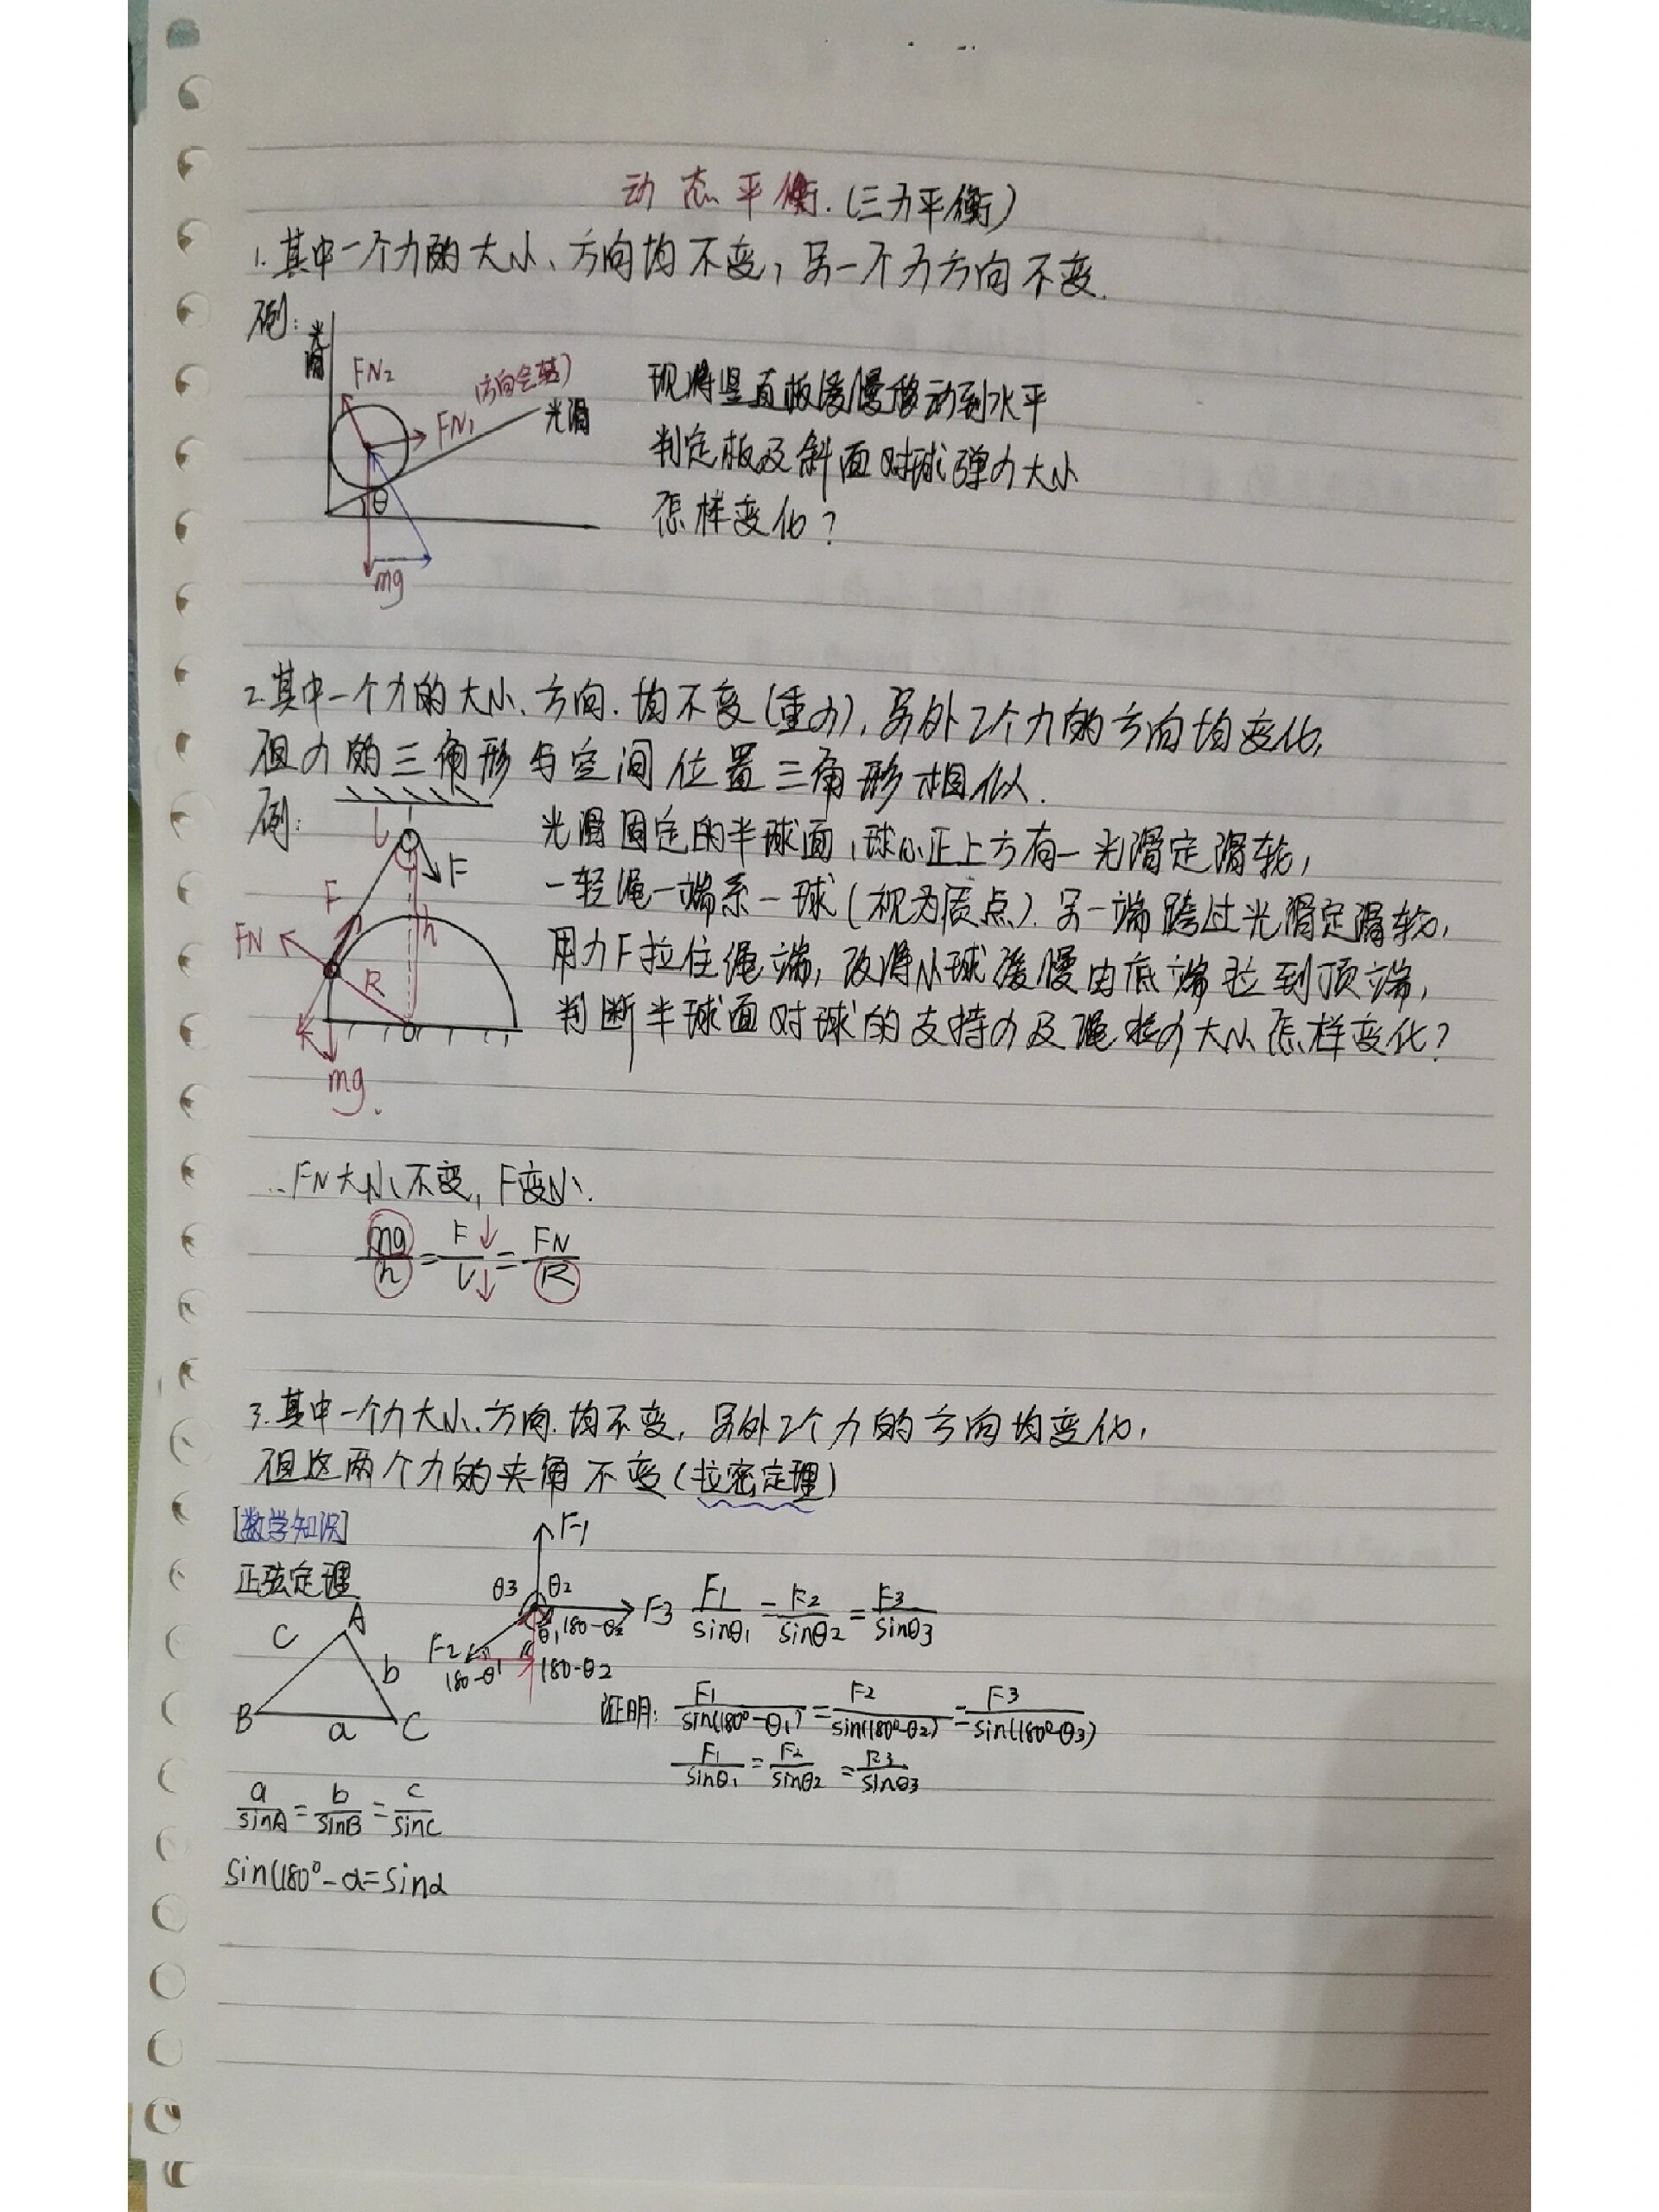 动态平衡.(三力平衡)
1.其中一个力的大小、方向均不变，另一个力方向不变.
例:
光滑
FN2
(方向会变)
FN1
光滑
θ
mg
现将竖直板缓慢移动到水平
判定板及斜面对球弹力大小
怎样变化?
2.其中一个力的大小、方向.均不变(重力),另外2个力的方向均变化,
但力的三角形与空间位置三角形相似.
例:
L
F
F
FN
h
R
O
mg.
光滑固定的半球面,球心正上方有一光滑定滑轮,
一轻绳一端系一球(视为质点).另一端跨过光滑定滑轮,
用力F拉住绳端,改将小球缓慢由底端拉到顶端,
判断半球面对球的支持力及绳拉力大小怎样变化?
∴FN大小不变,F变小.
mg/h=F↓/L↓=FN/R
3.其中一个力大小.方向.均不变,另外2个力的方向均变化,
但这两个力的夹角不变(拉密定理)
[数学知识]
正弦定理
A
c
b
B
a
C
F1
θ3 θ2
F3
θ1 180-θ2
F2
180-θ1
180-θ2
F1/sinθ1=F2/sinθ2=F3/sinθ3
证明: F1/sin(180°-θ1)=F2/sin(180°-θ2)=F3/sin(180°-θ3)
F1/sinθ1=F2/sinθ2=F3/sinθ3
a/sinA=b/sinB=c/sinC
sin(180°-α=sinα